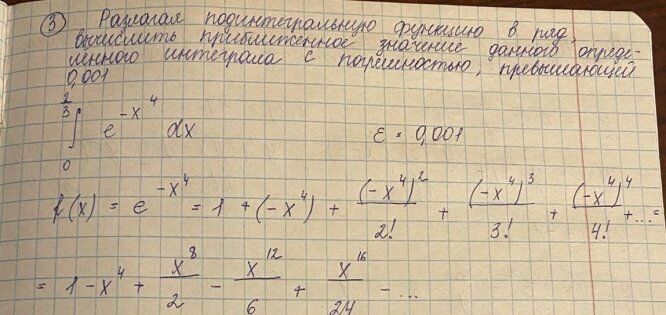 ③ Разлагая подинтегральную функцию в ряд,
вычислить приближенное значение данного опреде-
ленного интеграла с погрешностью, превышающей
0,001
∫₀^(2/3) e^(-x^4) dx ε = 0,001
f(x) = e^(-x^4) = 1 + (-x^4) + (-x^4)^2/2! + (-x^4)^3/3! + (-x^4)^4/4! + ... =
= 1 - x^4 + x^8/2 - x^12/6 + x^16/24 - ...